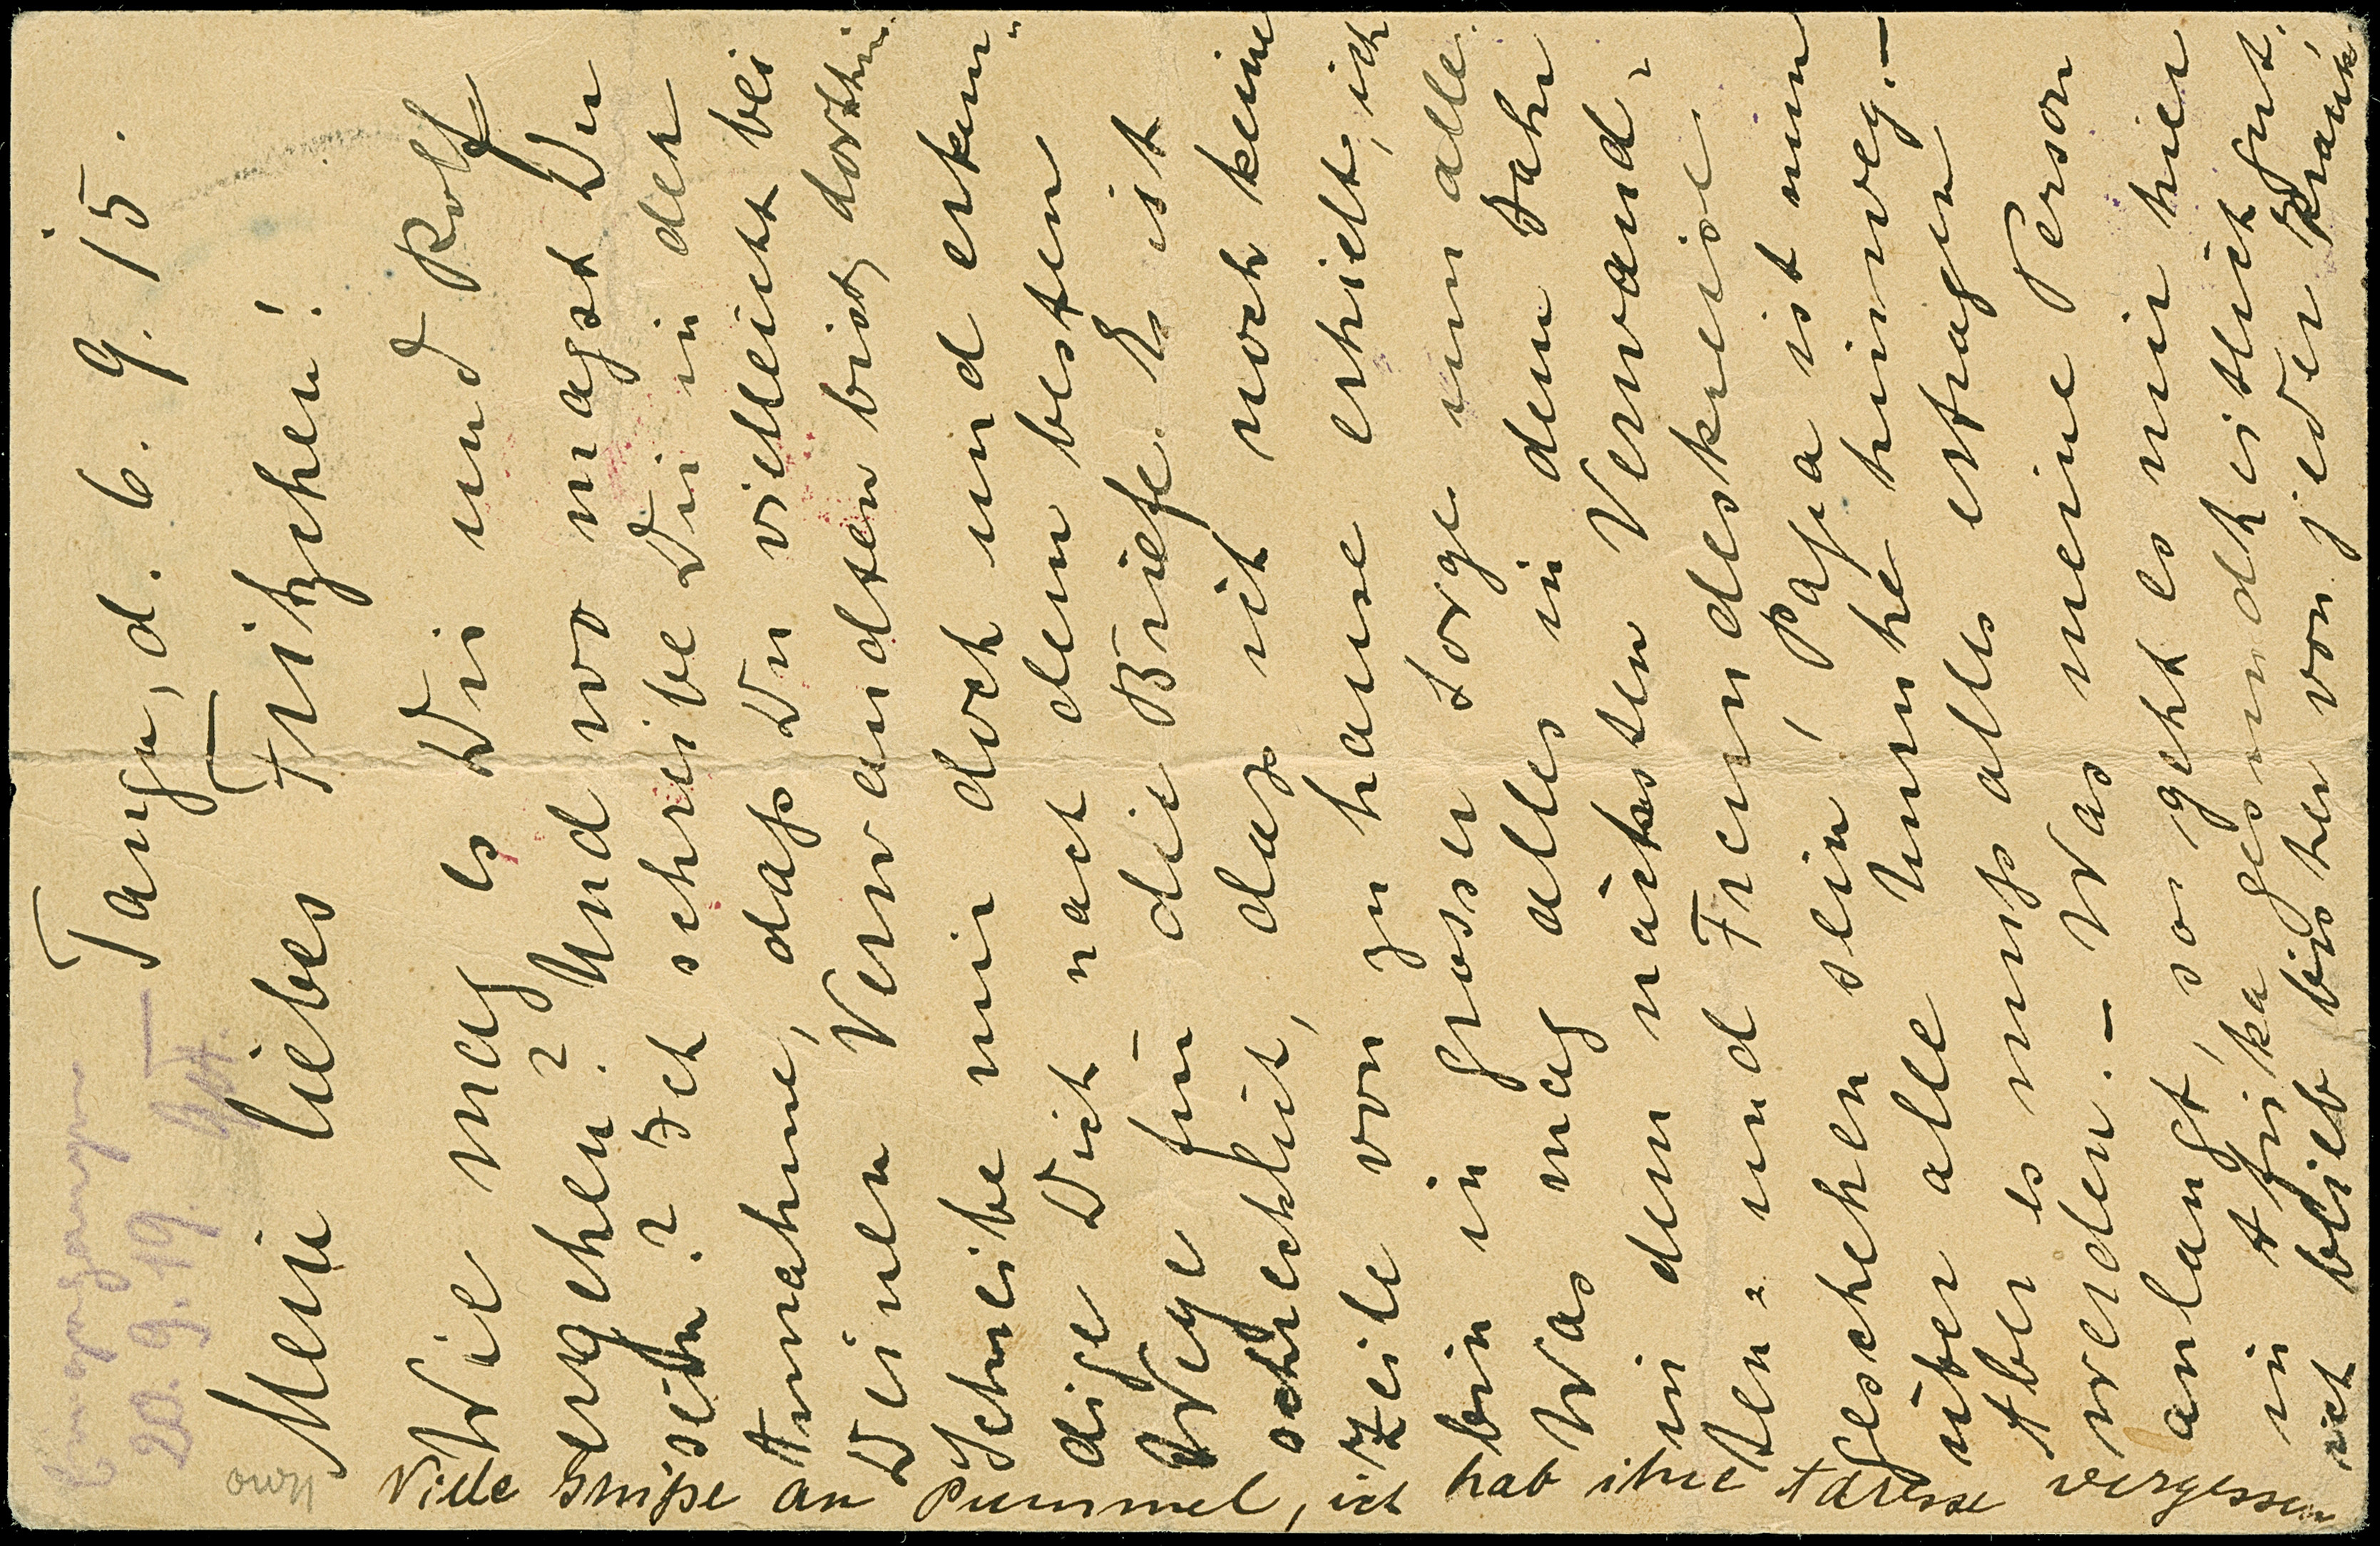 Tanga, d. 6. 9. 15.
Mein liebes Fritzchen!
Wie mag es Dir und Rolf
ergehen? Und wo magst Du
sein? Ich schreibe Dir in der
Annahme, dass Du vielleicht bei
Deinen Verwandten bist, dorthin.
Schreibe mir doch und erkun-
dige Dich nach dem besten
Wege für die Briefe. Es ist
schrecklich, dass ich noch keine
Zeile von zu hause erhielt, ich
bin in grosser Sorge um alle.
Was mag alles in dem Jahr
in dem nächsten Verwand-
ten- und Freundeskreise
geschehen sein, Papa ist nun
über alle Unruhe hinweg. –
Aber es muss alles ertragen
werden. – Was meine Person
anlangt, so geht es mir hier
in Afrika gesundheitlich gut,
ich blieb bisher von jeder Krank
Viele Grüße an Pummel, ich hab ihre Adresse vergessen
20. 9. 19